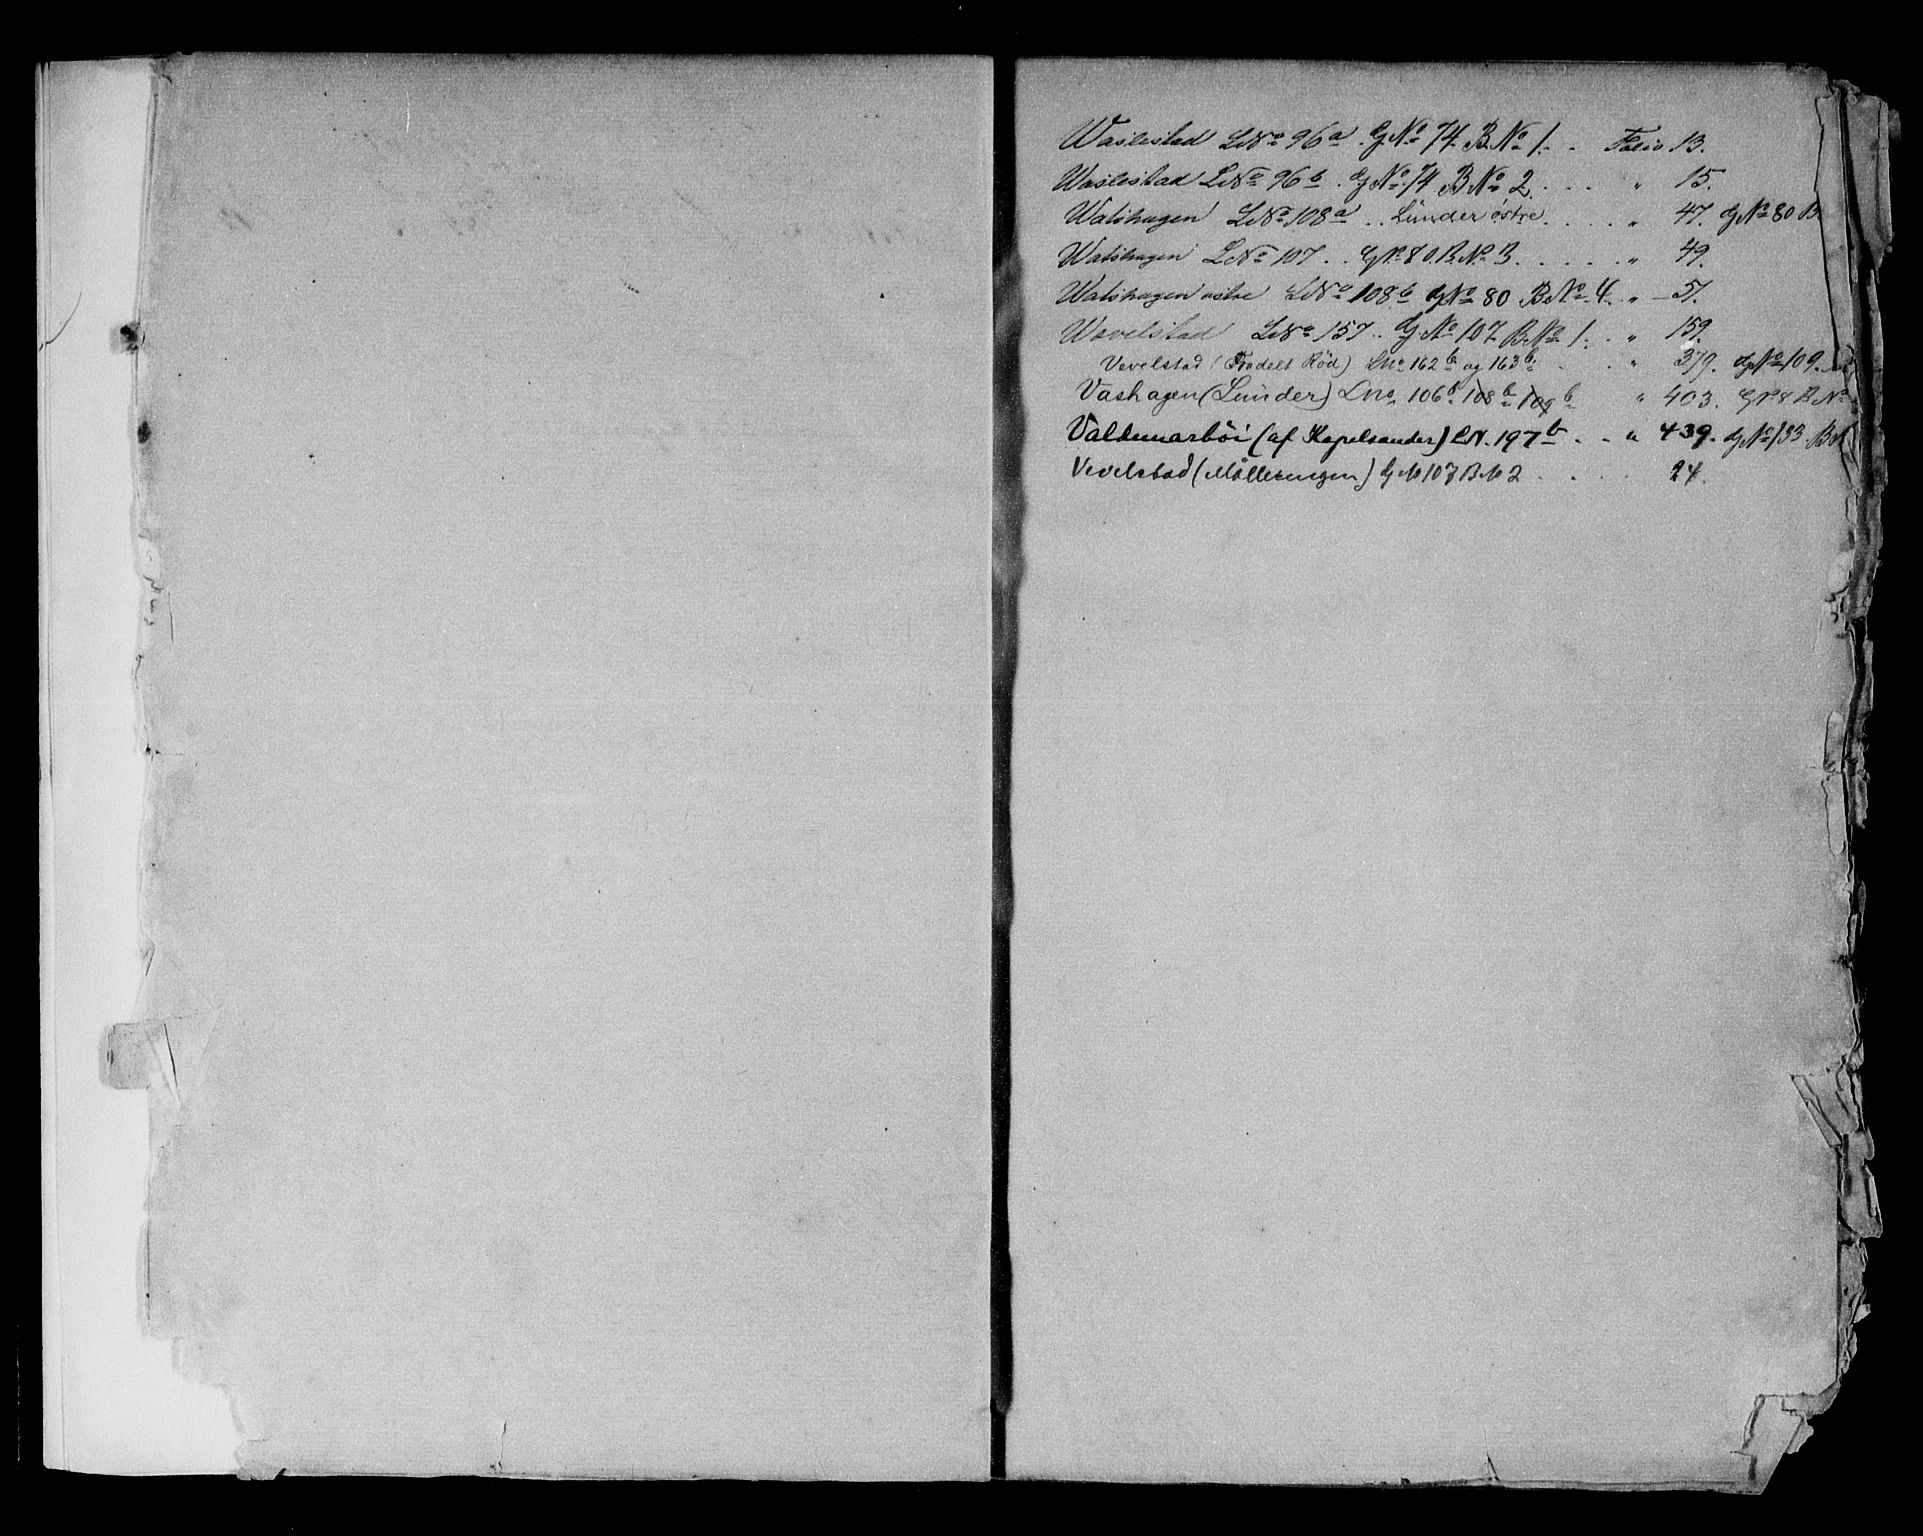 Waslestad LNo 96a. GNo 74. BNo 1. . Folio 13.
Waslestad LNo 96b. GNo 74 BNo 2. . . . " 15.
Watshagen LNo 108a . . Lunder østre. . . . . " 47. GNo 80 B
Watshagen LNo 107 . . GNo 80. BNo 3. . . . . " 49.
Watshagen østre LNo 108b GNo 80 BNo 4. " 51.
Wevelstad LNo 157 . . GNo 107 BNo 1. . " 159.
Vevelstad (Fradelt Röd) Lno 162b og 163b . . " 379. GNo 109.
Vashagen (Lunder) Lno. 106b. 108b 109b " 403. GNo 8 B No
Valdemarböi (af Kapelsander) LN. 197b . . " 439. GNo 133. BN
Vevelstad (Möllerengen) G No 107 B No 2 . . . . 24.